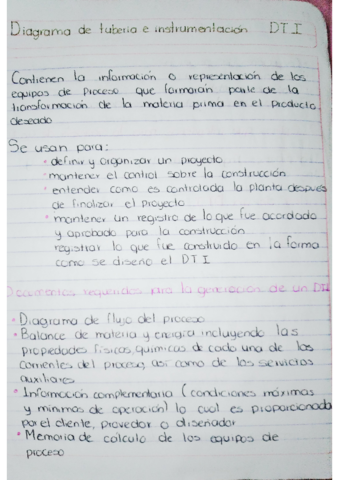 Diagrama de tuberia e instrumentación DTI
Contienen la información o representación de los
equipos de proceso que formarán parte de la
transformación de la materia prima en el producto
deseado
Se usan para:
• definir y organizar un proyecto
• mantener el control sobre la construcción
• entender como es controlada la planta despues
de finalizar el proyecto
• mantener un registro de lo que fue acordado
y aprobado para la construcción
registrar lo que fue construido en la forma
como se diseño el DTI
Documentos requeridos para la generacion de un DTI
• Diagrama de flujo del proceso
• Balance de materia y energia incluyendo las
propiedades fisicas, quimicas de cada una de las
corrientes del proceso, asi como de los servicios
auxiliares
• Información complementaria (condiciones máximas
y minimas de operación) lo cual es proporcionada
por el cliente, provedor o diseñador
• Memoria de calculo de los equipos de
proceso